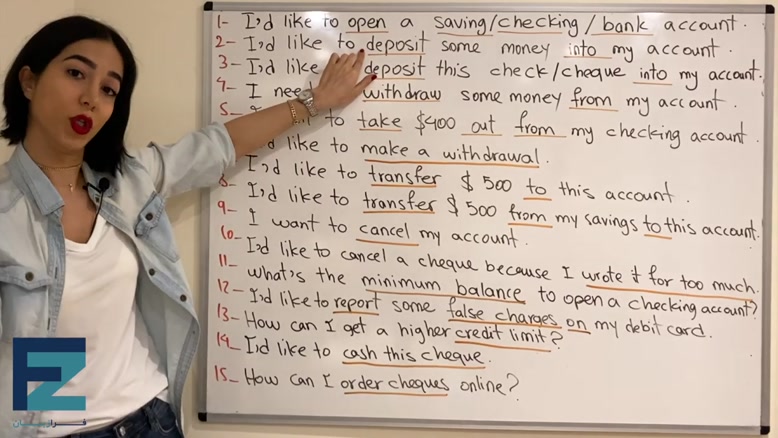 1- I'd like to open a saving/checking/bank account.
2- I'd like to deposit some money into my account.
3- I'd like deposit this check/cheque into my account.
4- I need withdraw some money from my account.
5- to take $400 out from my checking account.
like to make a withdrawal.
I'd like to transfer $500 to this account.
8- I'd like to transfer $500 from my savings to this account.
9- I want to cancel my account.
10- I'd like to cancel a cheque because I wrote it for too much.
11- What's the minimum balance to open a checking account?
12- I'd like to report some false charges on my debit card.
13- How can I get a higher credit limit?
14- I'd like to cash this cheque.
15- How can I order cheques online?
FZ
فراز زبان